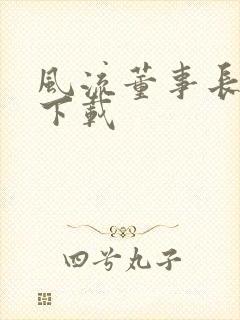 風流董事長
下載
四兮丸子